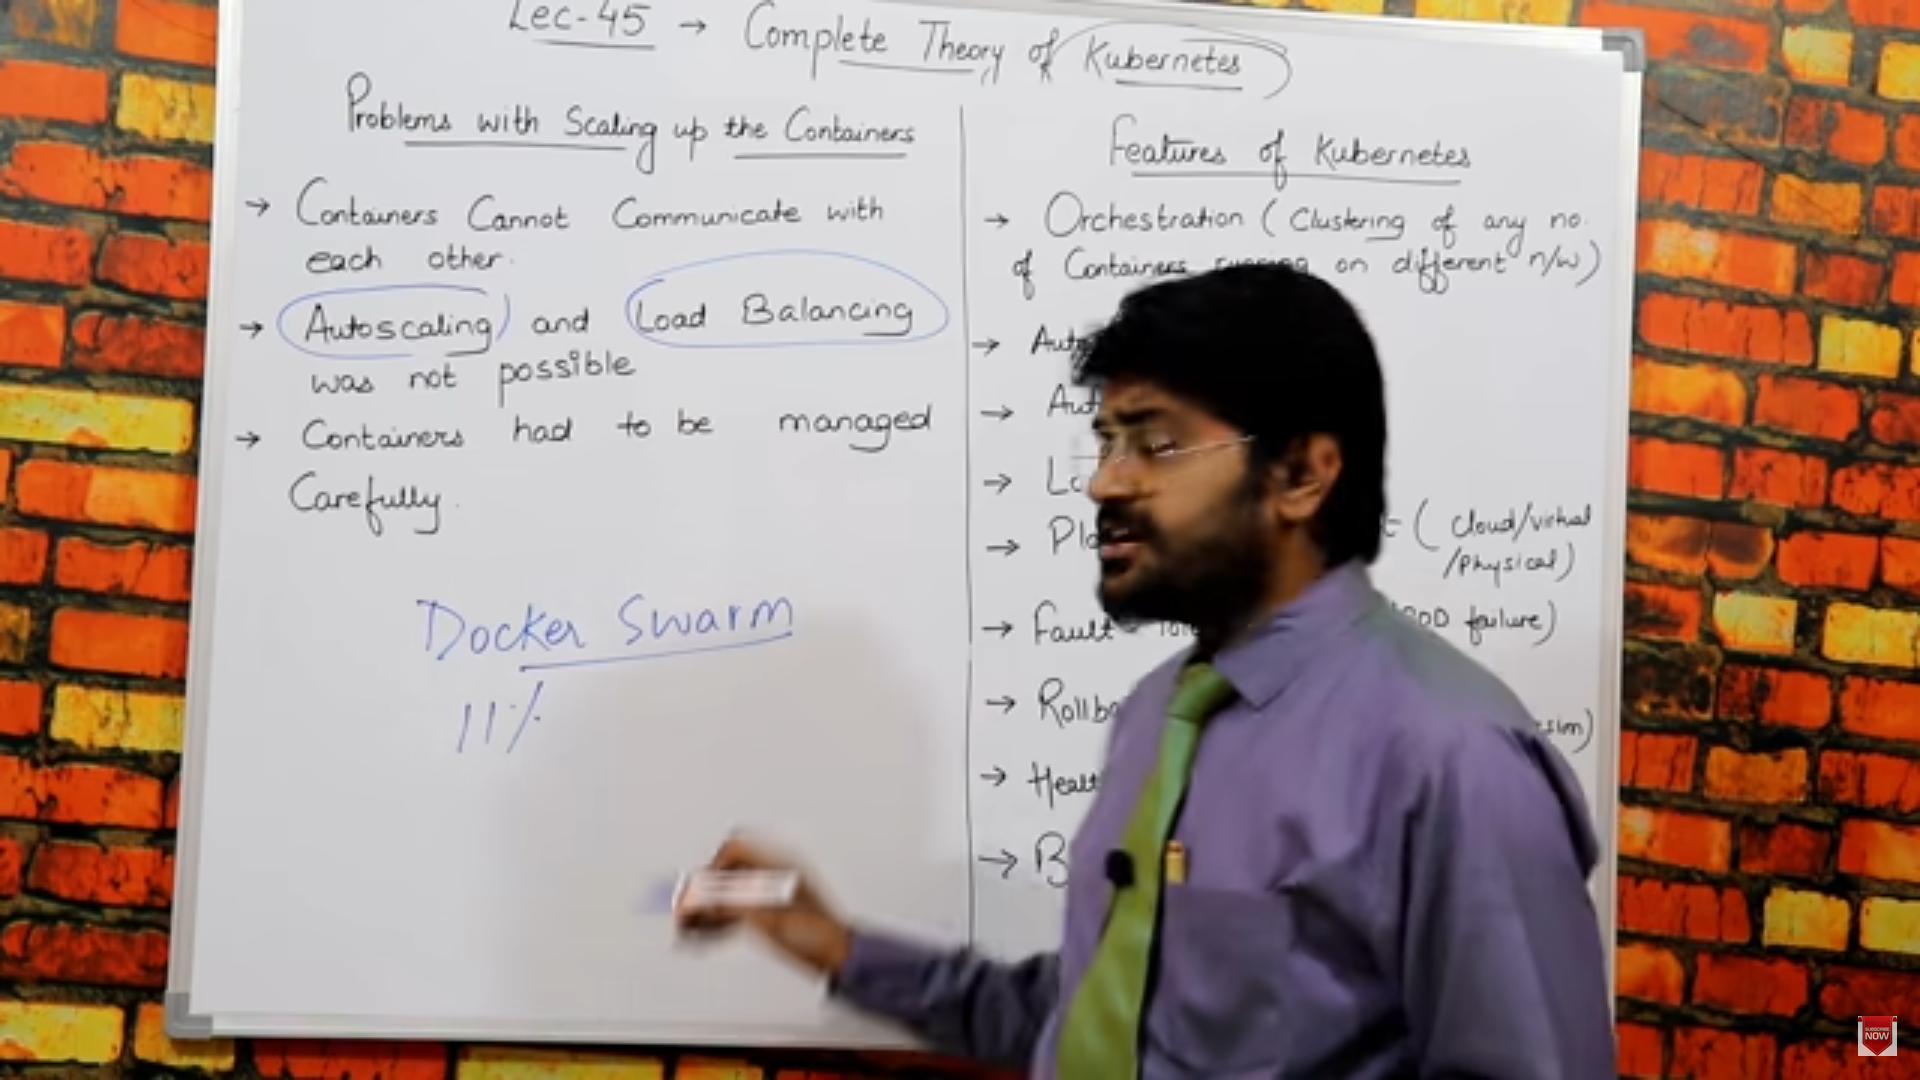 Lec-45 → Complete Theory of Kubernetes
Problems with Scaling up the Containers
→ Containers Cannot Communicate with
each other.
→ Autoscaling and Load Balancing
was not possible
→ Containers had to be managed
Carefully.
Docker Swarm
11%
Features of Kubernetes
→ Orchestration (Clustering of any no.
of Containers running on different n/w)
→
→
→
→ ( Cloud/virtual
/Physical)
→ Fault failure)
→
→
→
SUBSCRIBE
NOW